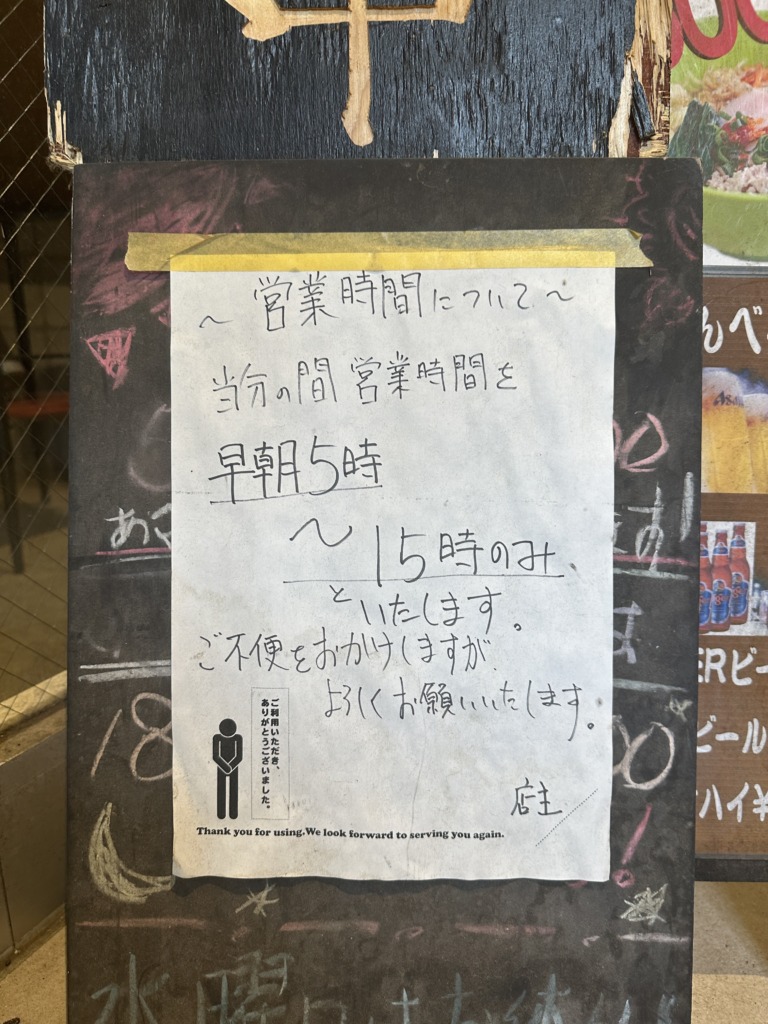 ～ 営業時間について ～
当分の間 営業時間を
早朝5時
～ 15時のみ、
といたします。
ご不便をおかけしますが、
よろしくお願いいたします。
ご利用いただき、
ありがとうございました。
店主
Thank you for using.We look forward to serving you again.
18
00
水曜日はお休み
んべ
ERビー
ビール
ハイ¥